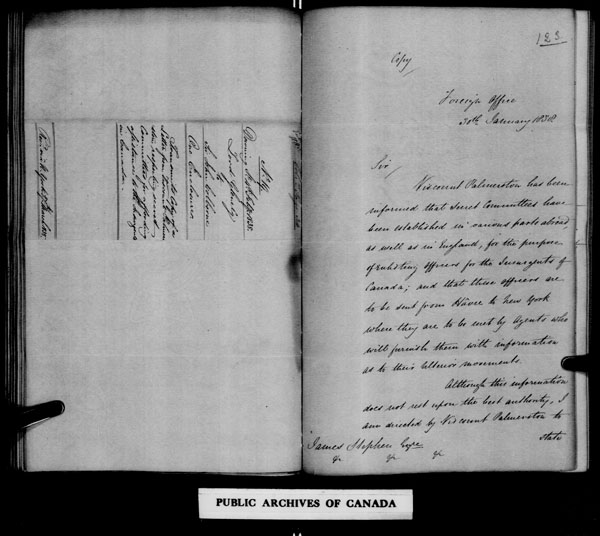 No 4
Downing St
Lord Glenelg
to
Sir John Colborne
One Enclosure
Copy of a
Letter from
Secret
Committees for
officers
in Canada.
123
Copy
Foreign Office
30th January 1838
Sir,
Viscount Palmerston has been
informed that Secret Committees have
been established in various parts abroad,
as well as in England, for the purpose
of enlisting Officers for the Insurgents of
Canada; and that these officers are
to be sent from Hâvre to New York
where they are to be met by Agents who
will furnish them with information
as to their ulterior movements.
Although this information
does not rest upon the best authority, I
am directed by Viscount Palmerston to
state
James Stephen Esqre
&c &c &c
PUBLIC ARCHIVES OF CANADA